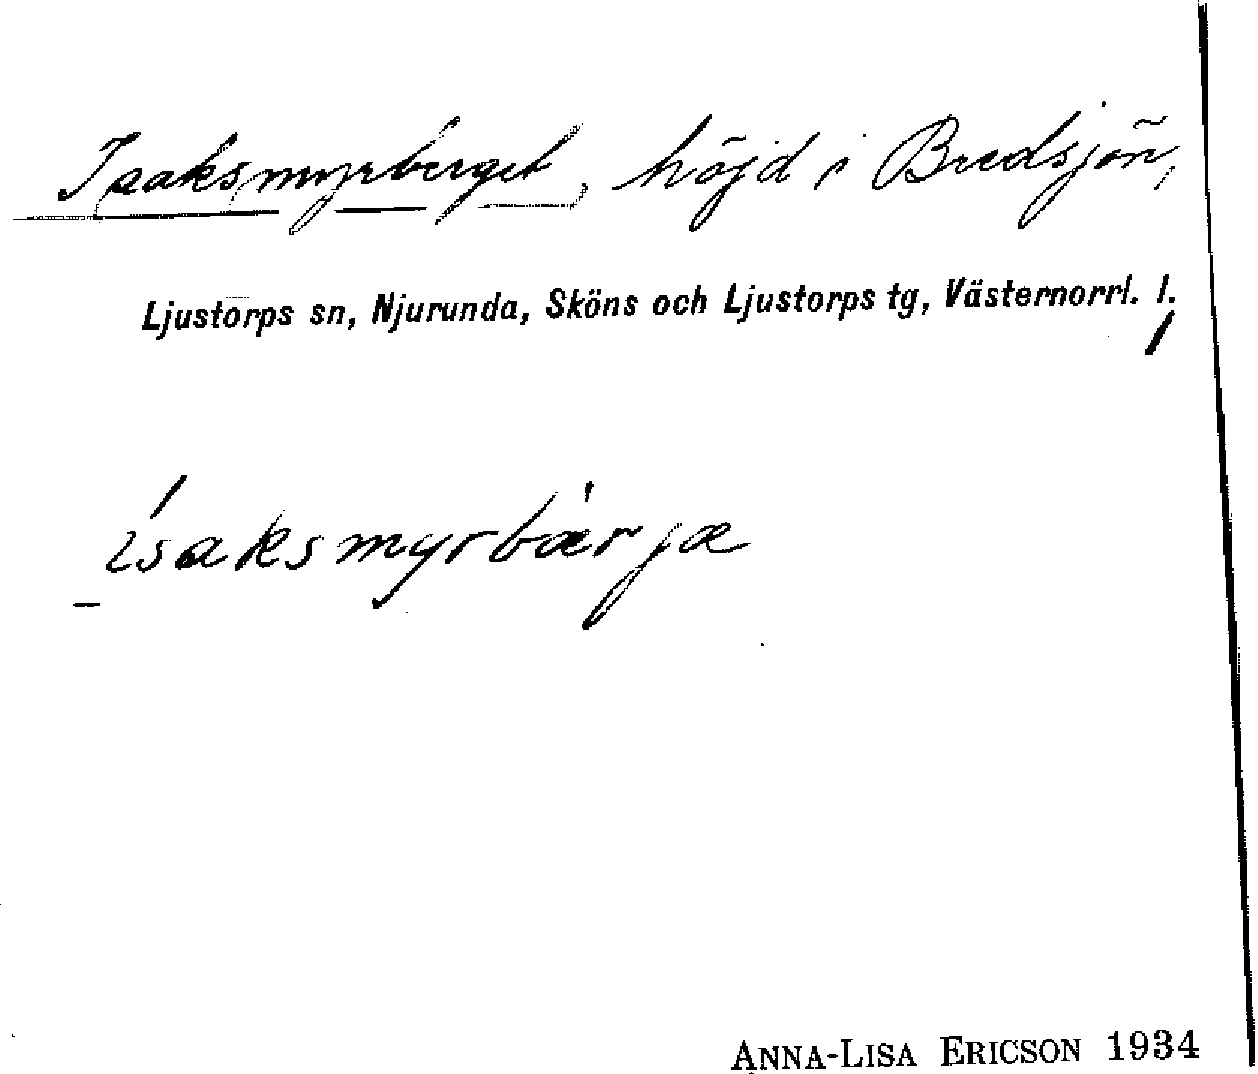 Isaksmyrberget, höjd i Bredsjön,
Ljustorps sn, Njurunda, Sköns och Ljustorps tg, Västernorrl. l.
ísaksmyrbærjæ
ANNA-LISA ERICSON 1934